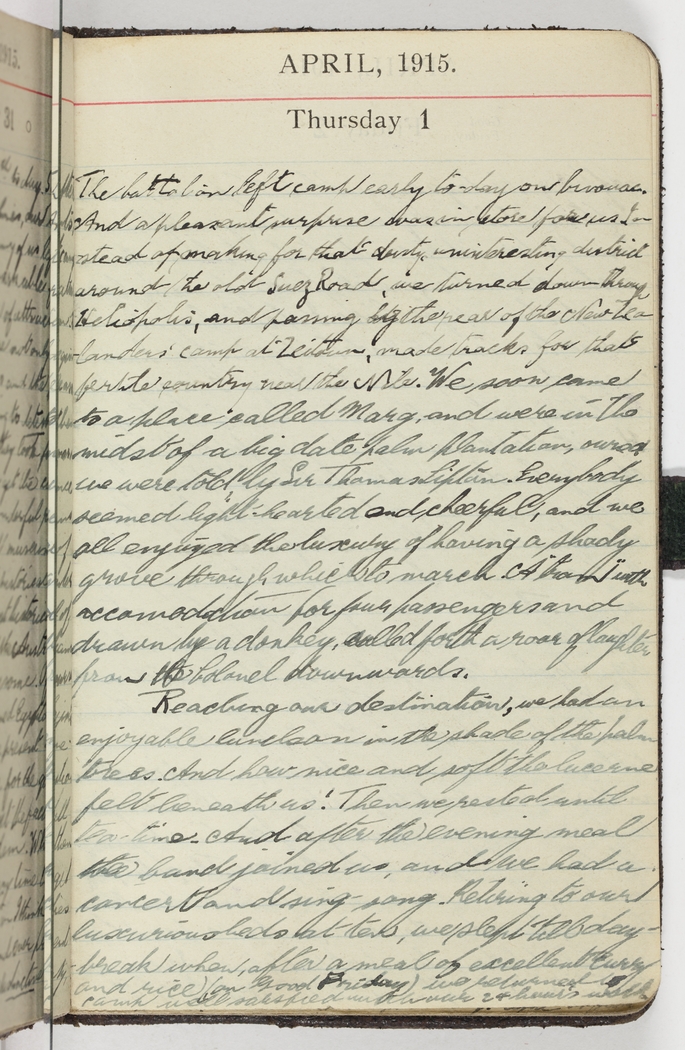 APRIL, 1915.
Thursday 1
The battalion left camp early to-day on bivouac.
And a pleasant surprise was in store for us. In-
stead of making for that dusty, uninteresting district
around the old Suez Road, we turned down through
Heliopolis, and passing by the rear of the New Zea-
landers' camp at Zeitoun, made tracks for that
fertile country near the Nile. We soon came
to a place called Marg, and were in the
midst of a big date palm plantation, owned
we were told, by Sir Thomas Lipton. Everybody
seemed light-hearted and cheerful, and we
all enjoyed the luxury of having a shady
grove through which to march. A "tram" with
accomodation for four passengers and
drawn by a donkey, called forth a roar of laughter
from the Colonel downwards.
Reaching our destination, we had an
enjoyable luncheon in the shade of the palm
trees. And how nice and soft the lucerne
felt beneath us! Then we rested until
tea-time. And after the evening meal
the band joined us, and we had a
concert and sing-song. Retiring to our
luxurious beds at ten, we slept till day-
break when, after a meal of excellent curry
and rice) on Good Friday) we returned to
camp well satisfied with our 24 hours' work